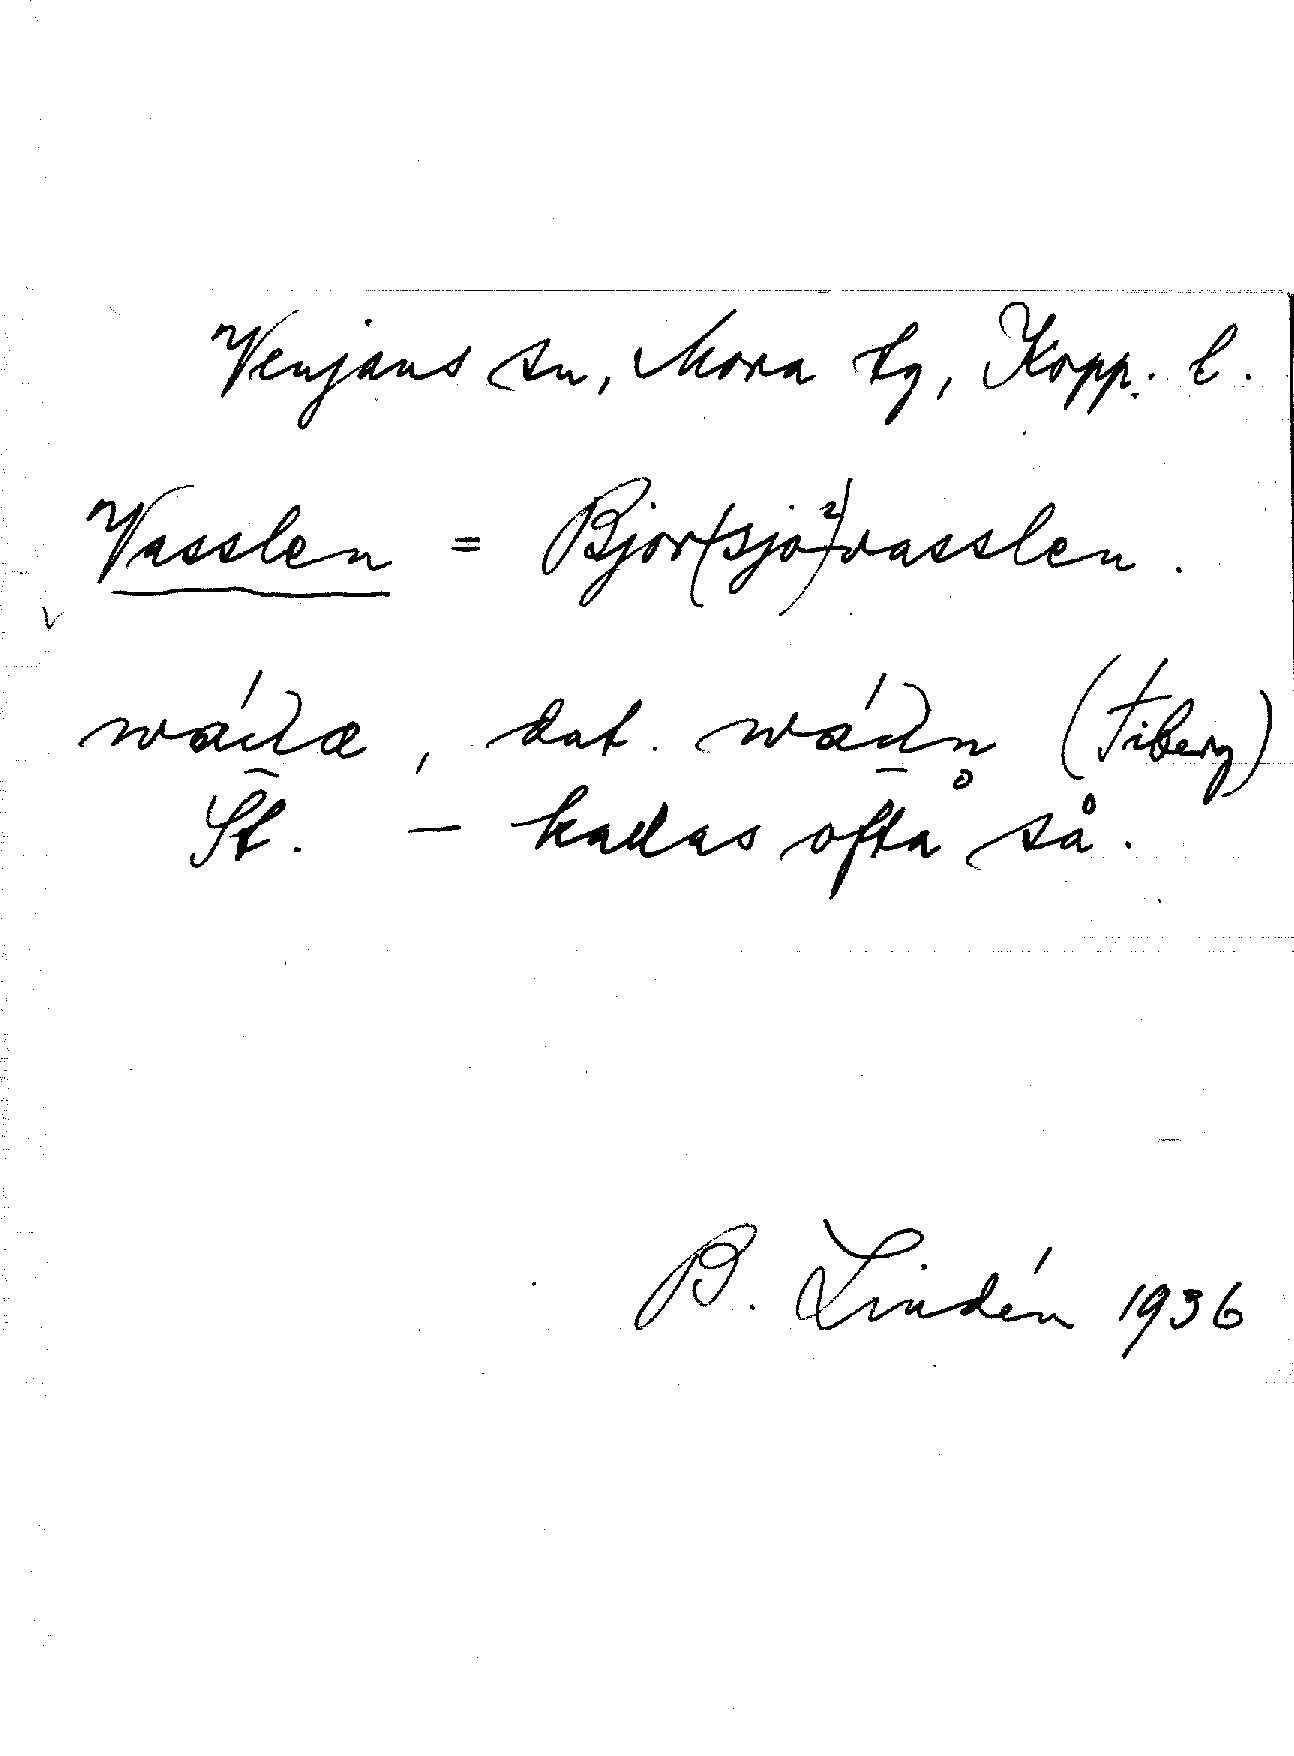 Venjans sn, Mora tg, Kopp. l.
Vasslen = Bjor(sjö)vasslen.
, dat. (Tiberg)
St. – kallas ofta så.
B. Lindén 1936